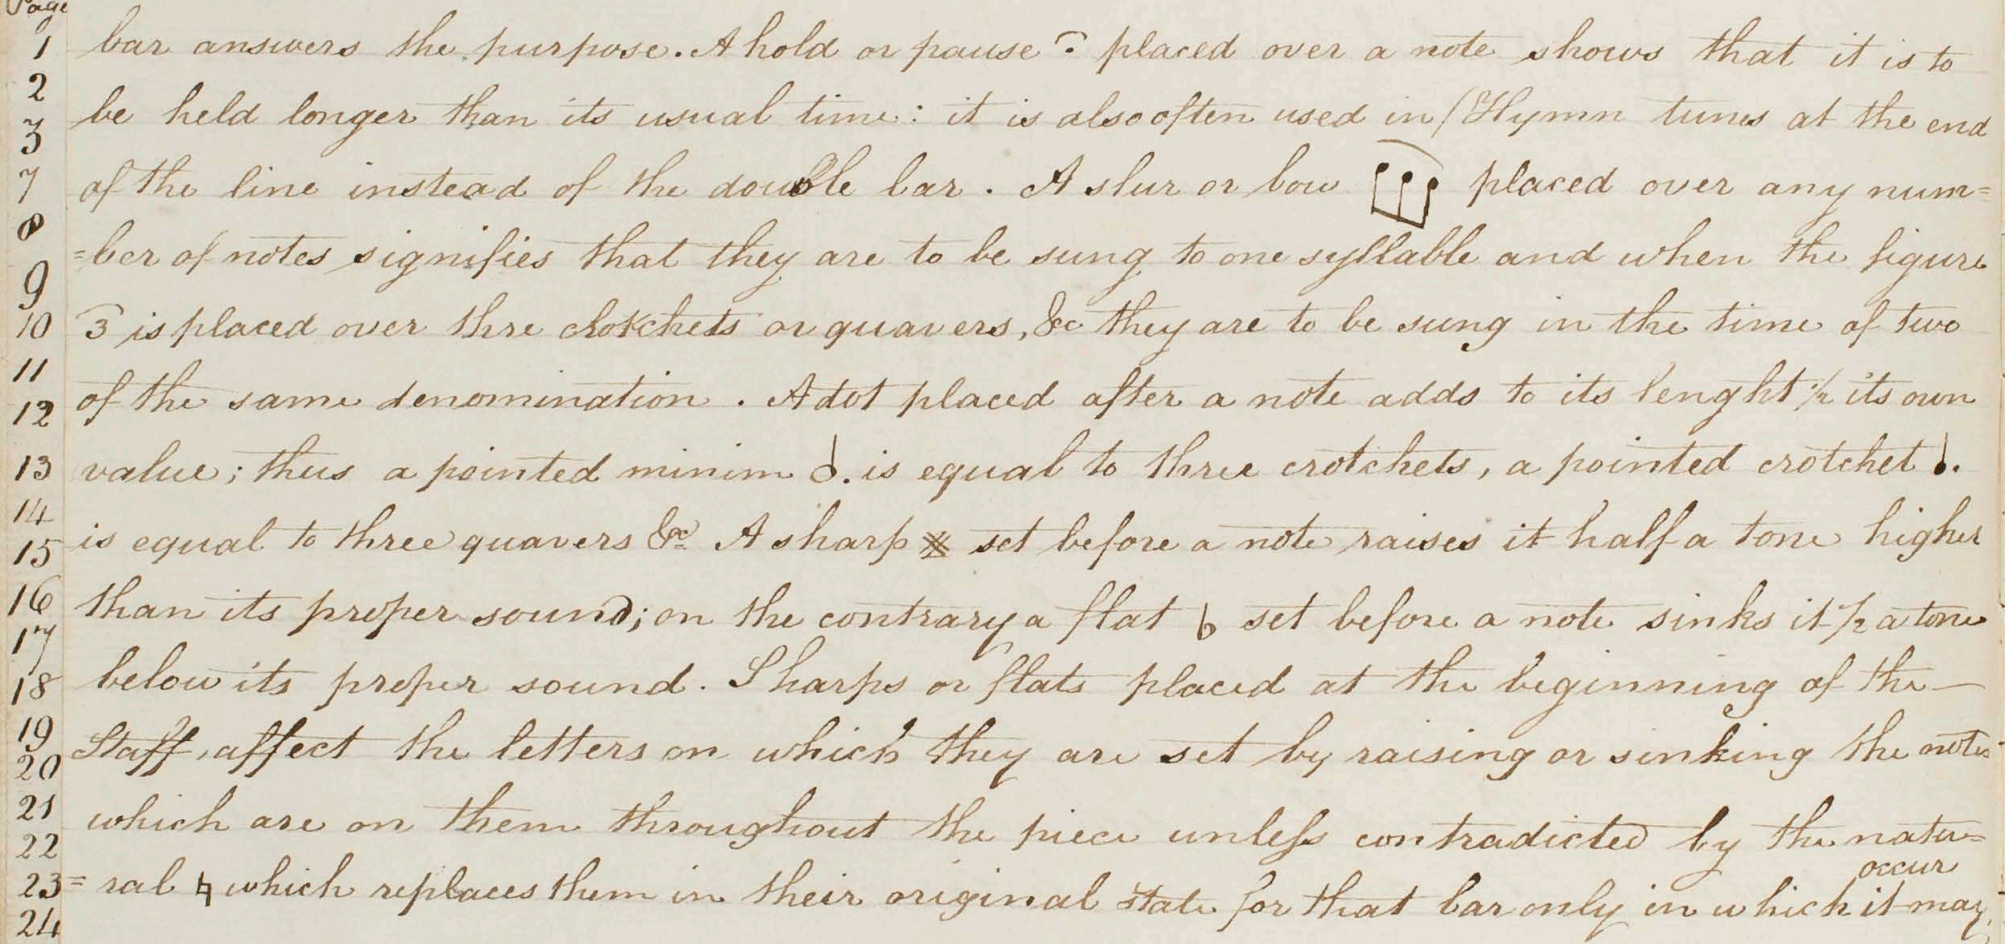 Page
1 bar answers the purpose. A hold or pause 𝄐 placed over a note shows that it is to
2
be held longer than its usual time: it is also often used in Hymn tunes at the end
3
7 of the line instead of the double bar. A slur or bow placed over any num=
8
=ber of notes signifies that they are to be sung to one syllable and when the figure
9
10 3 is placed over thre crotchets or quavers, &c they are to be sung in the time of two
11
12 of the same denomination. A dot placed after a note adds to its lenght 1/2 its own
13 value; thus a pointed minim 𝅗𝅥. is equal to three crotchets, a pointed crotchet ♩.
14
15 is equal to three quavers &c A sharp ♯ set before a note raises it half a tone higher
16 than its proper sound; on the contrary a flat ♭ set before a note sinks it 1/2 a tone
17
18 below its proper sound. Sharps or flats placed at the beginning of the
19 Staff, affect the letters on which they are set by raising or sinking the notes
20
21 which are on them throughout the piece unless contradicted by the natu=
22
occur
23 =ral ♮ which replaces them in their original state for that bar only in which it may
24